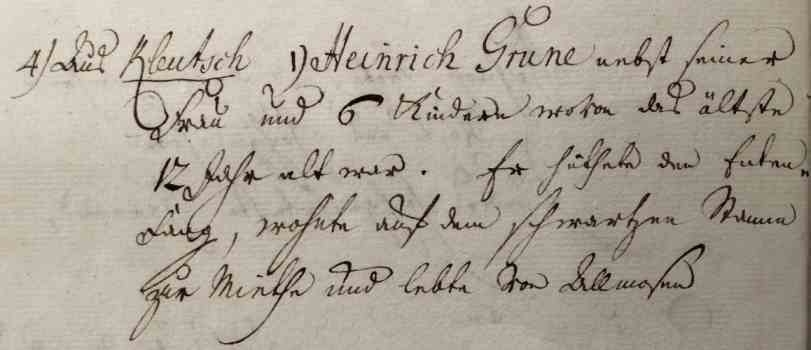 4) Aus Kleutsch 1) Heinrich Grune nebst seiner
Frau und 6 Kindern wovon das älteste
12 Jahr alt war. Er hüthete den Enten-
Fang, wohnte auf dem schwartzen Stamm
zur Miethe und lebte von Allmosen